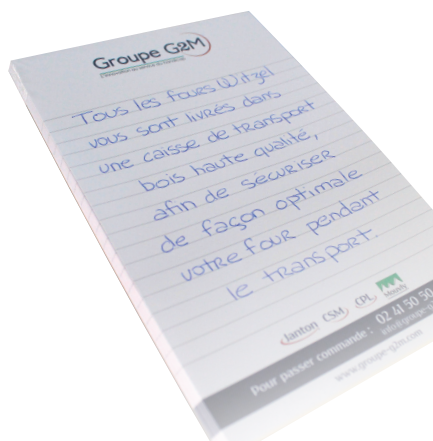 Groupe G2M
Tous les fours Witzel
vous sont livrés dans
une caisse de transport
bois haute qualité,
afin de securiser
de façon optimale
votre four pendant
le transport.
Janton CSM CPL
Pour passer commande : 02 41 50 50
www.groupe-g2m.com